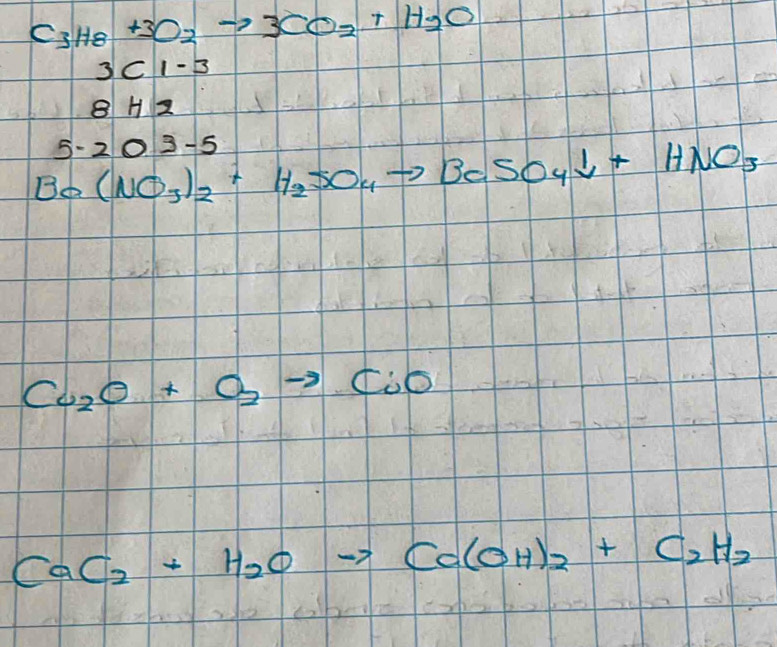 C₃H₈ +3O₂ → 3CO₂ + H₂O
3 C 1-3
8 H 2
5-2 O 3-5
Ba(NO₃)₂ + H₂SO₄ → BaSO₄↓ + HNO₃
Cu₂O + O₂ → CuO
CaC₂ + H₂O → Ca(OH)₂ + C₂H₂